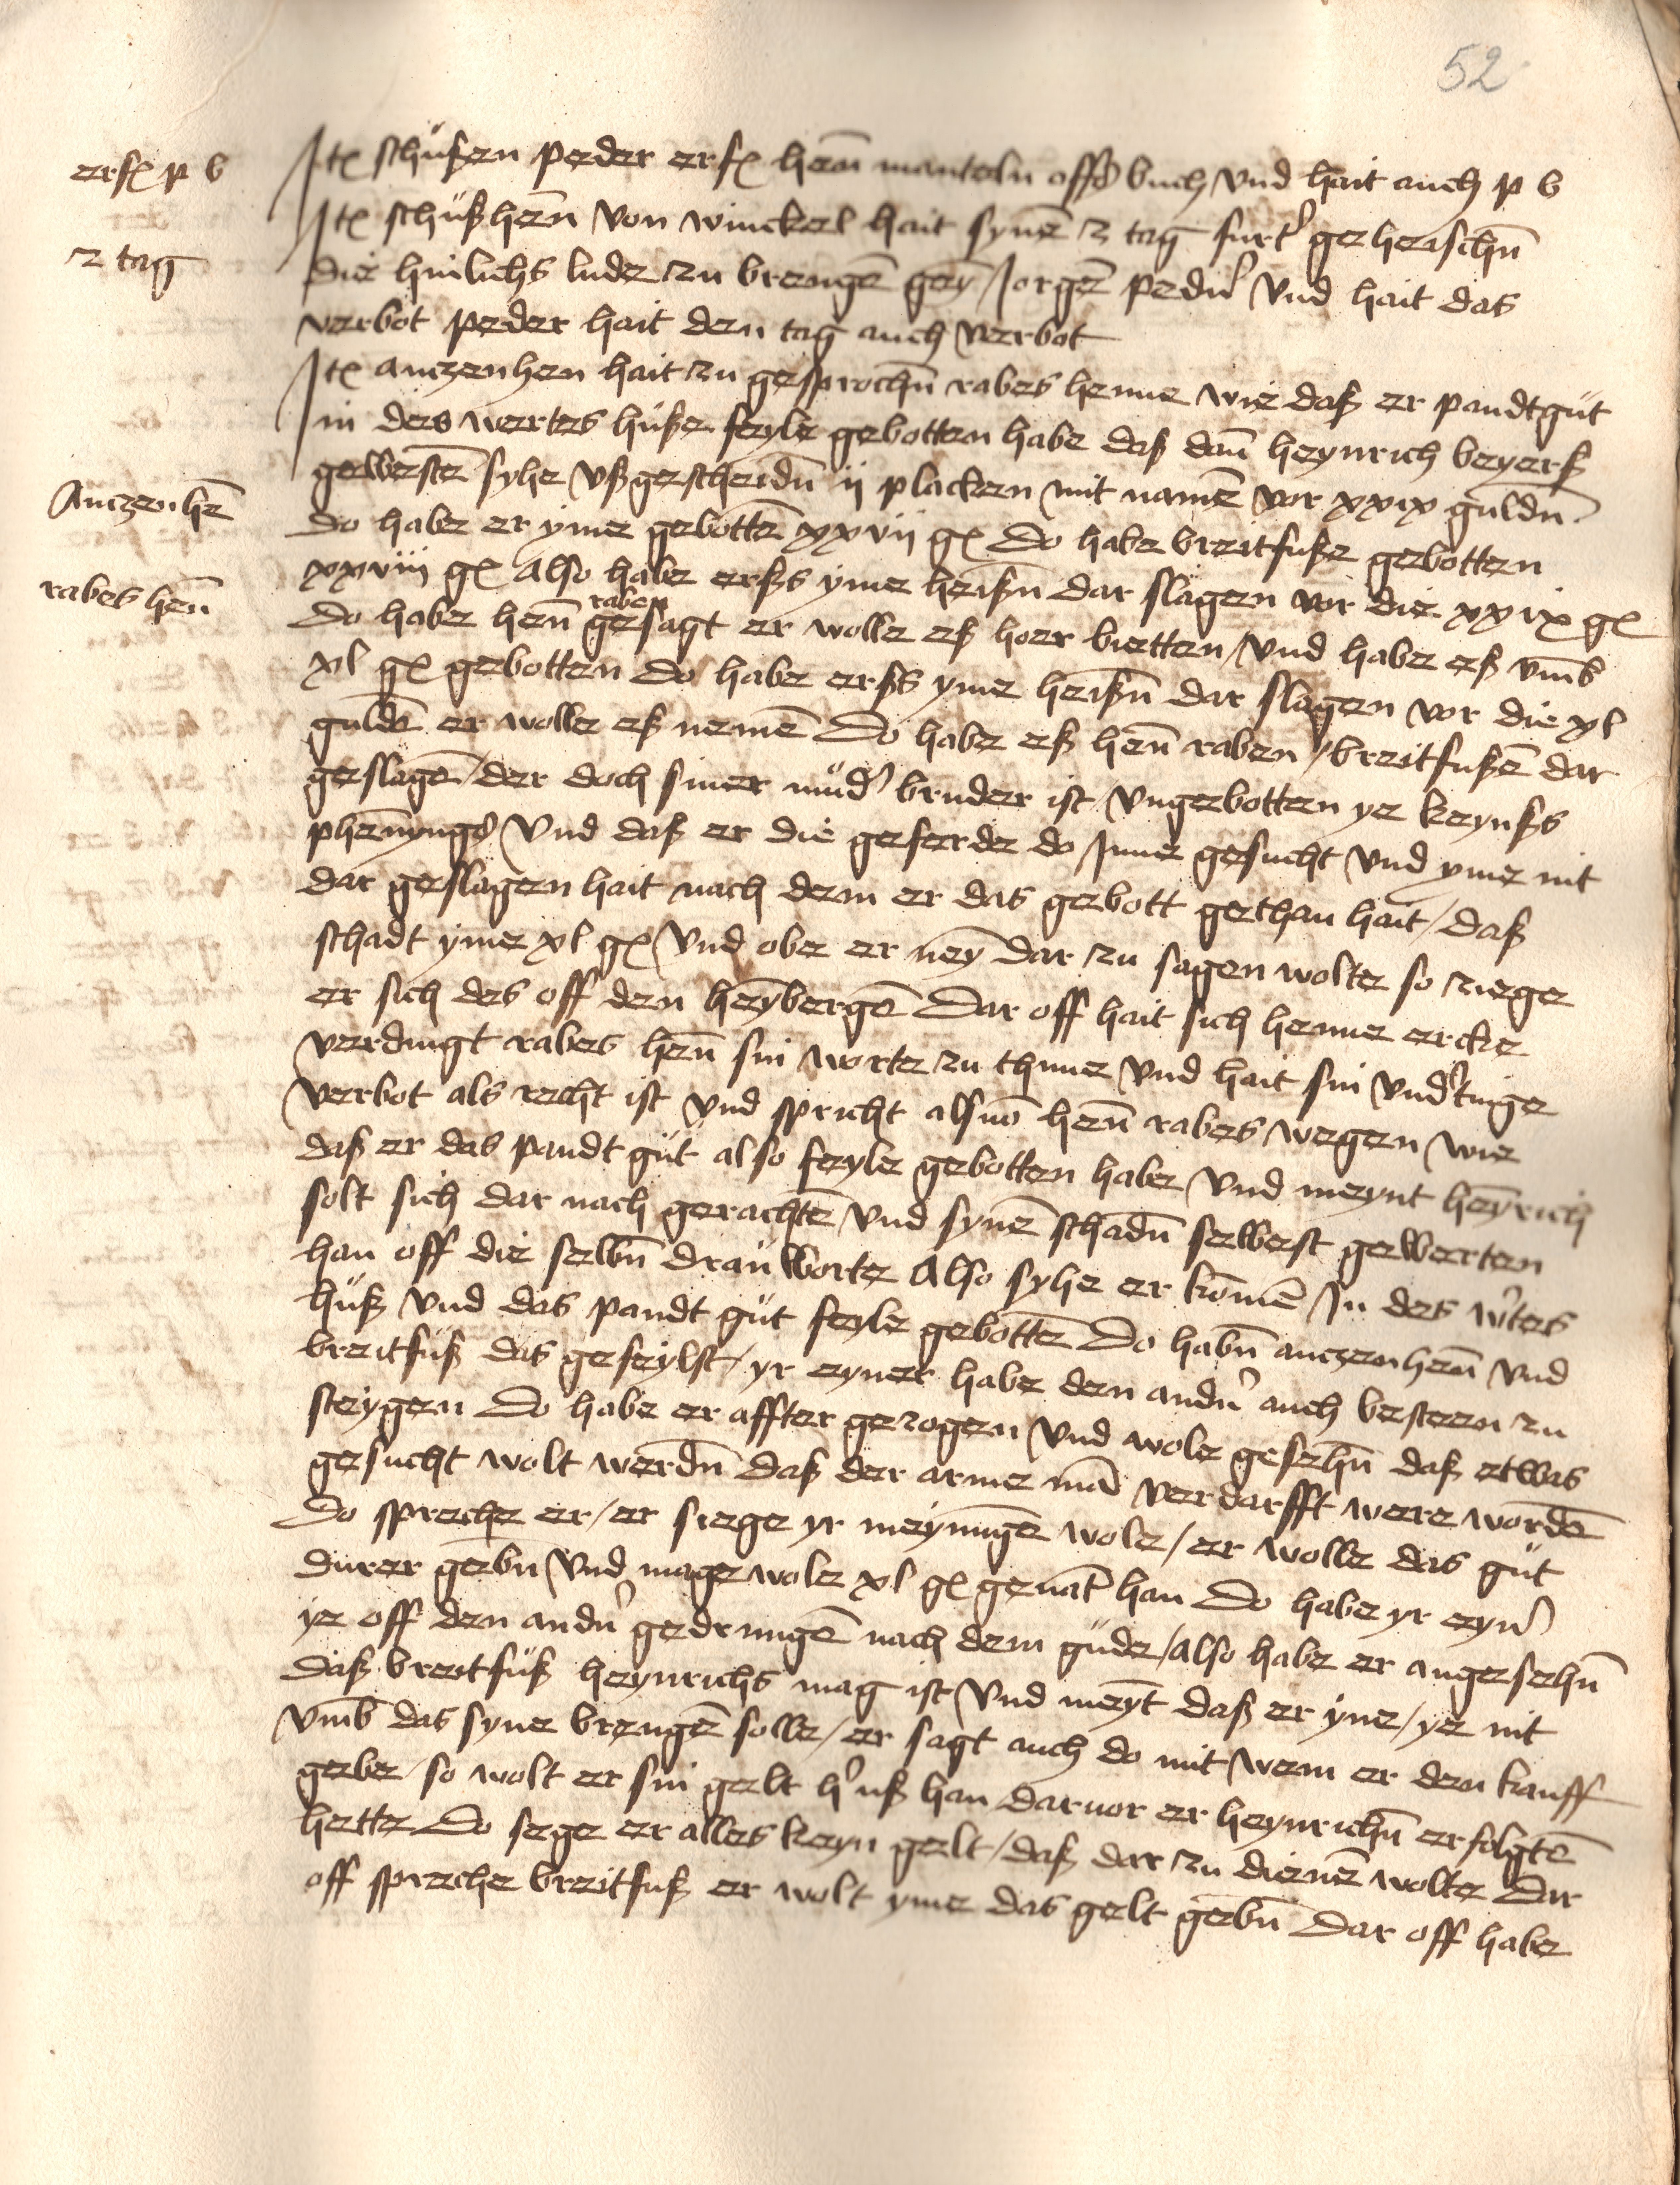 52
erf(x) p b
Jt(x) schüßen peder erf(x) henn manteln off(s) buch / vnd hait auch p b
Jt(x) schüßhenn von winckel hait synē z tag furt(er) geheischn̄
z tag
die hinlichs lude zu brengē geȳ Jorgē pedu(er) vnd hait das
verbot peder hait den tag auch verbot
Jt(x) anczenhen hait zu gesprochn̄ rabes henne wie daß er pandtgüt
Jn des wertes hüße feyle gebotten habe daß dan̄ heynrich beyerß
gewestē syhe vßgescheidn̄ ij placken mit namē vor xxix guldn̄
Anczenhē
do habe er yme gebottē xxvij g(x) Do habe breitfuße gebotten
xxviij g(x) Also habe erßs yme heißn̄ dar slagen vor die xxix g(x)
rabes hen̄
do habe hen̄ raben gesagt er wolle eß hoer bietten / vnd habe eß vm̄b
xl g(x) gebotten Do habe erßs yme heißn̄ dar slagen vor die xl
guldē er wolle eß nemē Do habe eß hen̄ raben / breitfußē dar
geslagē / der doch siner mud(er) bruder ist vngebotten ye keynßs
phen̄yng(s) vnd daß er die geferde do Jnne gesucht vnd yme nit
dar geslagen hait nach dem er das gebott gethan hait / daß
schadt yme xl g(x) / vnd obe er neȳ dar zu sagen wolte so ziege
er sich des off den heȳbergē Dar off hait sich henne ercke
verdingt rabes hen̄ sin worte zu thune vnd hait sin vnd(er)tinge
verbot als recht ist vnd spricht alsuō hen̄ rabes wegen / wie
daß er das pandt güt also feyle gebotten habe / vnd meynt heȳrich
solt sich dar nach gerachtē / vnd synē schadn̄ selbest gewerten
han off die selbn̄ drauworte Also syhe er komē Jn des w(er)tes
huß vnd das pandt güt feyle gebottē Do habn̄ anczenhen̄ vnd
breitfuß das gefeylst / yr eyner habe den andn(er) auch besteen zu
steygen Do habe er affter gezogen vnd wole gesehn̄ daß etwas
gesucht wolt werdn̄ daß der arme mā verdarfft were wordē
Do spreche er / er siege yr meynūgē wole / er wolle das güt
durer gebn̄ / vnd mage wole xl g(x) genāt han Do habe yr eyn(er)
ye off den andn(er) gedrungē nach dem gude / also habe er angesehn̄
daß breitfüß heynrichs mag ist / vnd meȳt daß er yne / ye nit
vm̄b das syne brengē solle / er sagt auch do mit / wem er den kauff
gebe / so wolt er sin gelt h(er) uß han daruor er heynrichn̄ erfolgtē
hette Do sege er alles keyn gelt / daß dar zu dienē wolte Dar
off spreche breitfuß er wolt yme das gelt gebn̄ Dar off habe